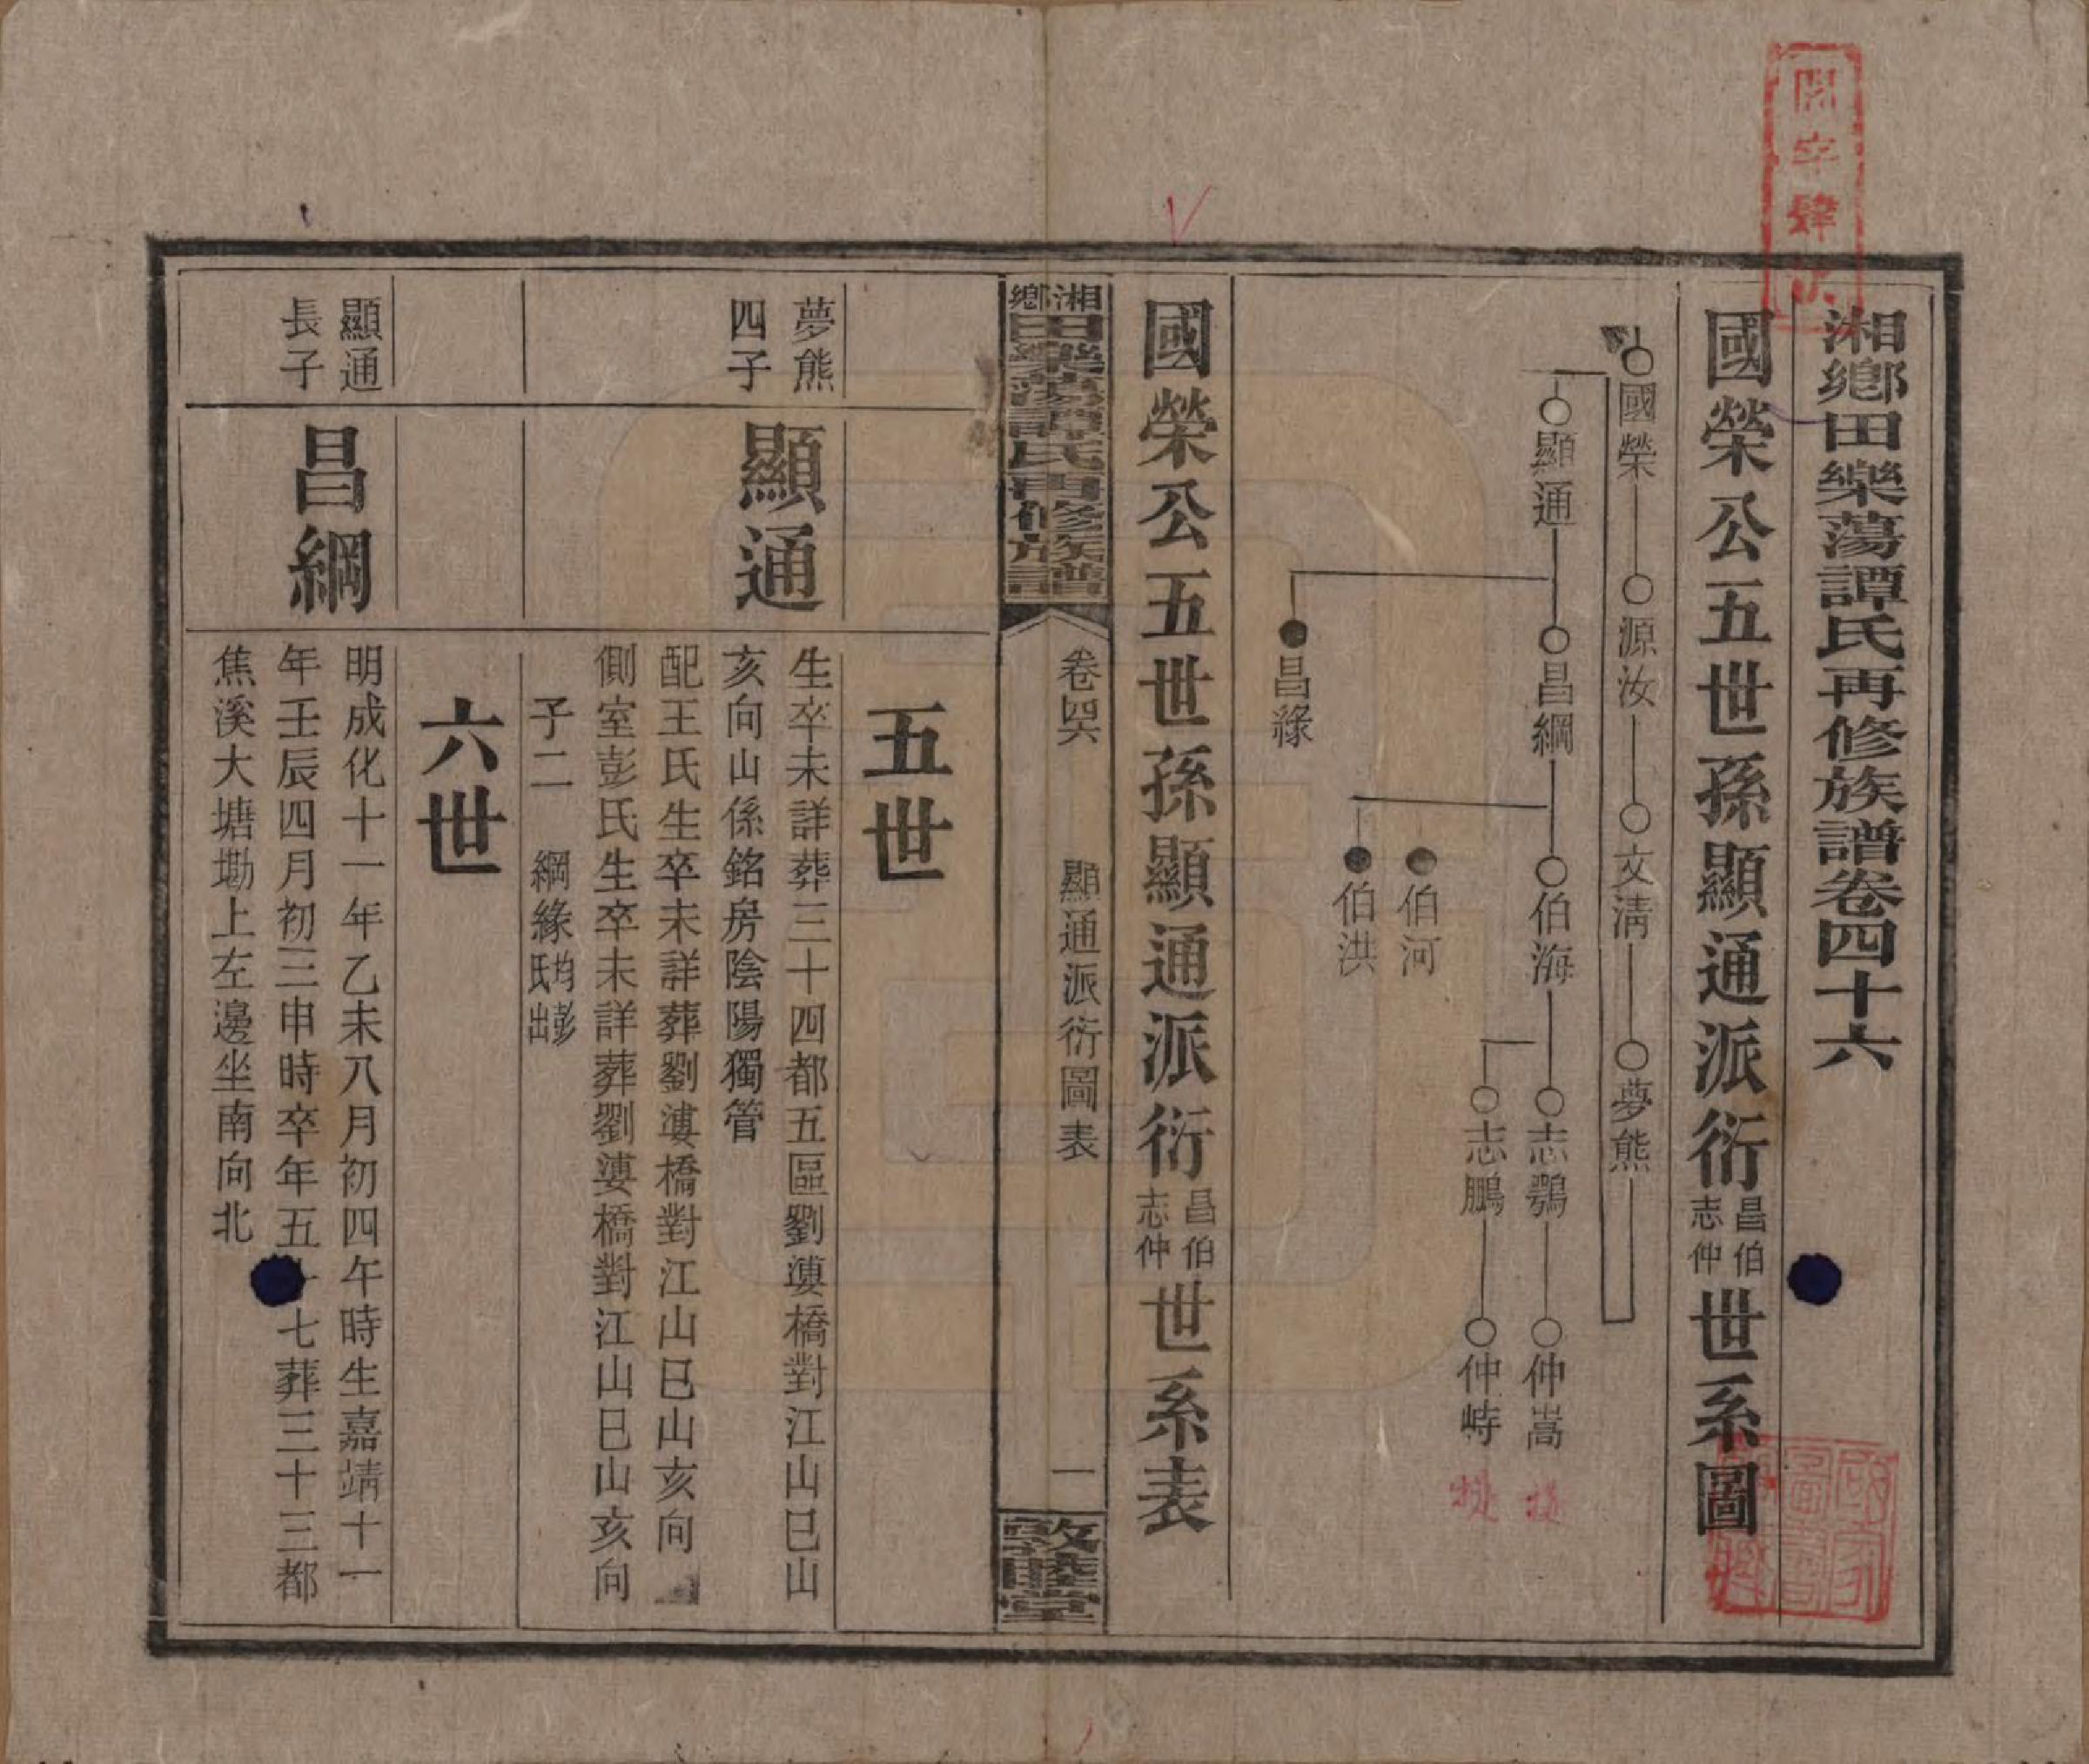 湘鄉田樂蕩譚氏再修族譜卷四十六
國榮公五世孫顯通派衍昌伯志仲世系圖
國榮 源汝 文清 夢熊
顯通 昌綱 伯海 志鶚 仲嵩
志鵬 仲峙
伯河
伯洪
昌緣
國榮公五世孫顯通派衍昌伯志仲世系表
湘鄉田樂蕩譚氏再修族譜 卷四六 顯通派衍圖表 一 敦睦堂
五世
夢熊
四子
顯通
生卒未詳葬三十四都五區劉漊橋對江山巳山
亥向山係銘房陰陽獨管
配王氏生卒未詳葬劉漊橋對江山巳山亥向
側室彭氏生卒未詳葬劉漊橋對江山巳山亥向
子二 綱緣均彭氏出
六世
顯通
長子
昌綱
明成化十一年乙未八月初四午時生嘉靖十一
年壬辰四月初三申時卒年五十七葬三十三都
焦溪大塘墈上左邊坐南向北